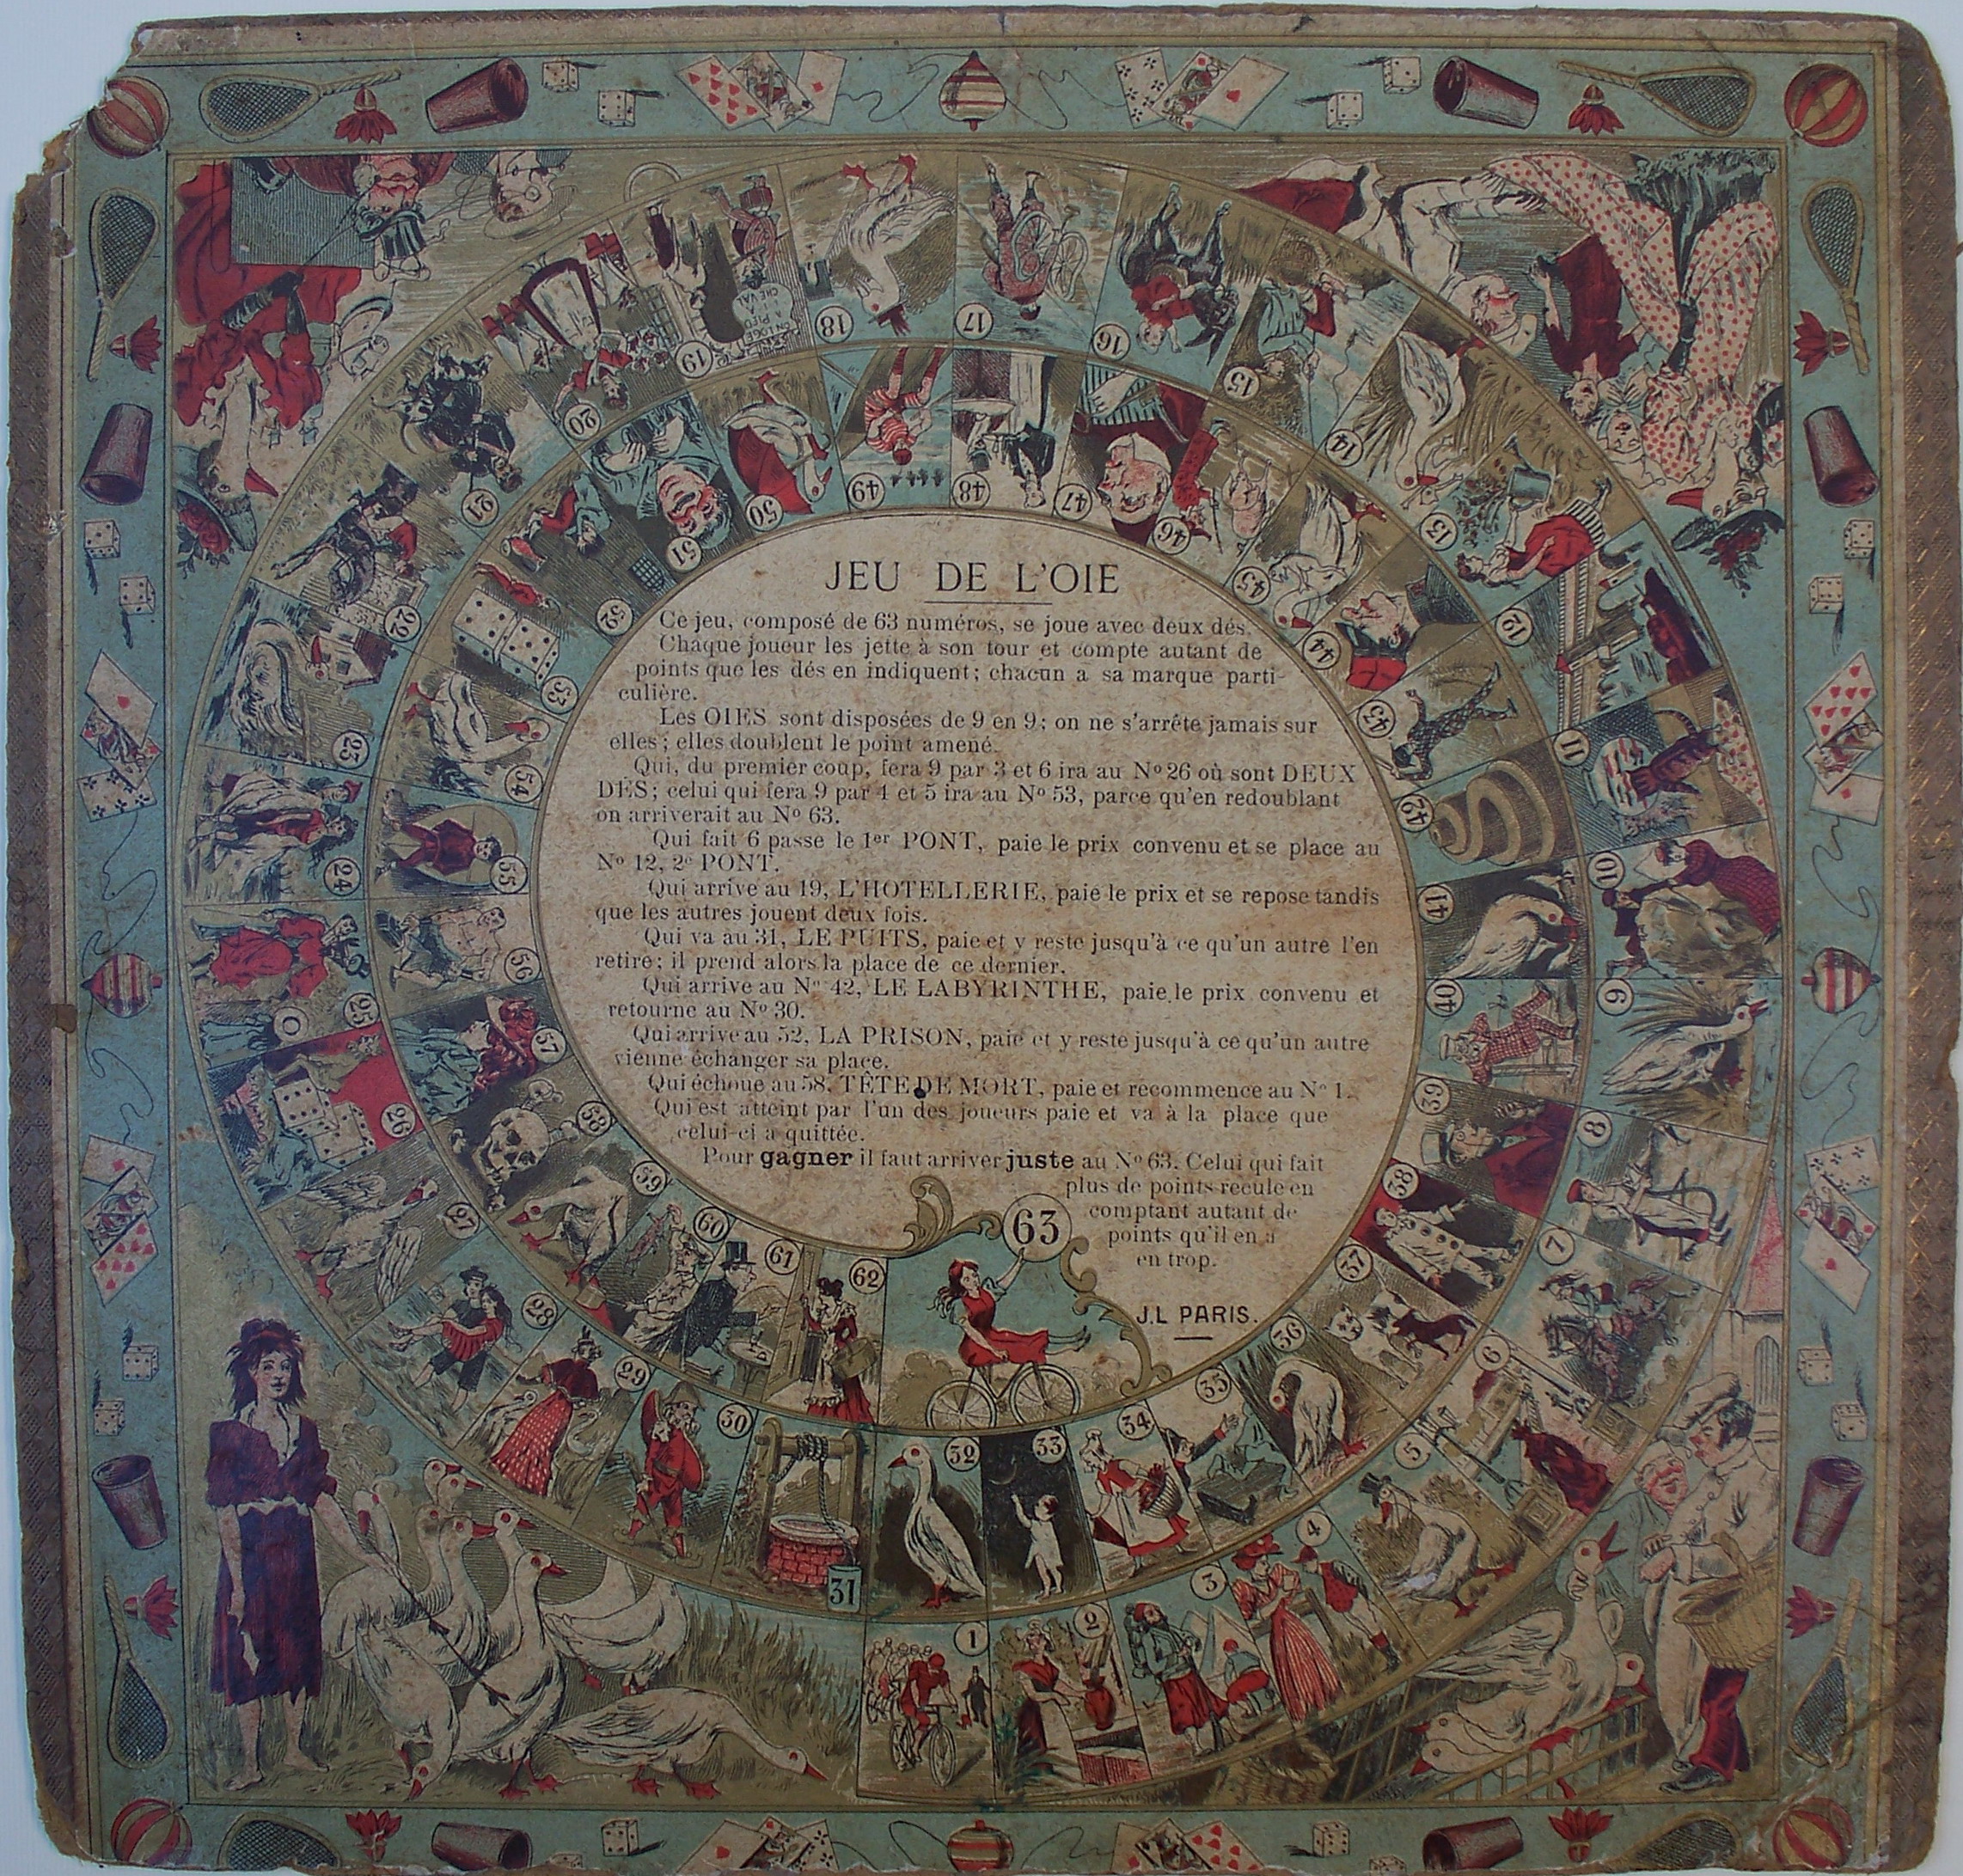 JEU DE L'OIE
Ce jeu, composé de 63 numéros, se joue avec deux dés.
Chaque joueur les jette à son tour et compte autant de
points que les dés en indiquent; chacun a sa marque parti-
culière.
Les OIES sont disposées de 9 en 9; on ne s'arrête jamais sur
elles; elles doublent le point amené.
Qui, du premier coup, fera 9 par 3 et 6 ira au No 26 où sont DEUX
DÉS; celui qui fera 9 par 4 et 5 ira au No 53, parce qu'en redoublant
on arriverait au No 63.
Qui fait 6 passe le 1er PONT, paie le prix convenu et se place au
No 12, 2e PONT.
Qui arrive au 19, L'HOTELLERIE, paie le prix et se repose tandis
que les autres jouent deux fois.
Qui va au 31, LE PUITS, paie et y reste jusqu'à ce qu'un autre l'en
retire; il prend alors la place de ce dernier.
Qui arrive au No 42, LE LABYRINTHE, paie le prix convenu et
retourne au No 30.
Qui arrive au 52, LA PRISON, paie et y reste jusqu'à ce qu'un autre
vienne échanger sa place.
Qui échoue au 58, TÊTE DE MORT, paie et recommence au No 1.
Qui est atteint par l'un des joueurs paie et va à la place que
celui-ci a quittée.
Pour gagner il faut arriver juste au No 63. Celui qui fait
plus de points recule en
comptant autant de
points qu'il en a
en trop.
J.L PARIS.
1
2
3
4
5
6
7
8
9
10
11
12
13
14
15
16
17
18
19
ON LOGE
A PIED
CHEVAL
20
21
22
23
24
25
26
27
28
29
30
31
32
33
34
35
36
37
38
39
40
41
42
43
44
45
46
47
48
49
50
51
52
53
54
55
56
57
58
59
60
61
62
63